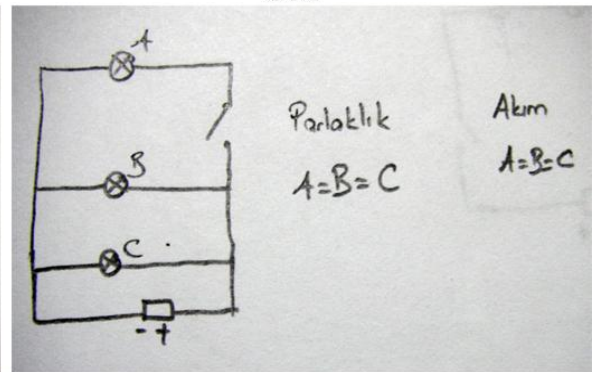 A
B
C
- +
Parlaklık
A=B=C
Akım
A=B=C